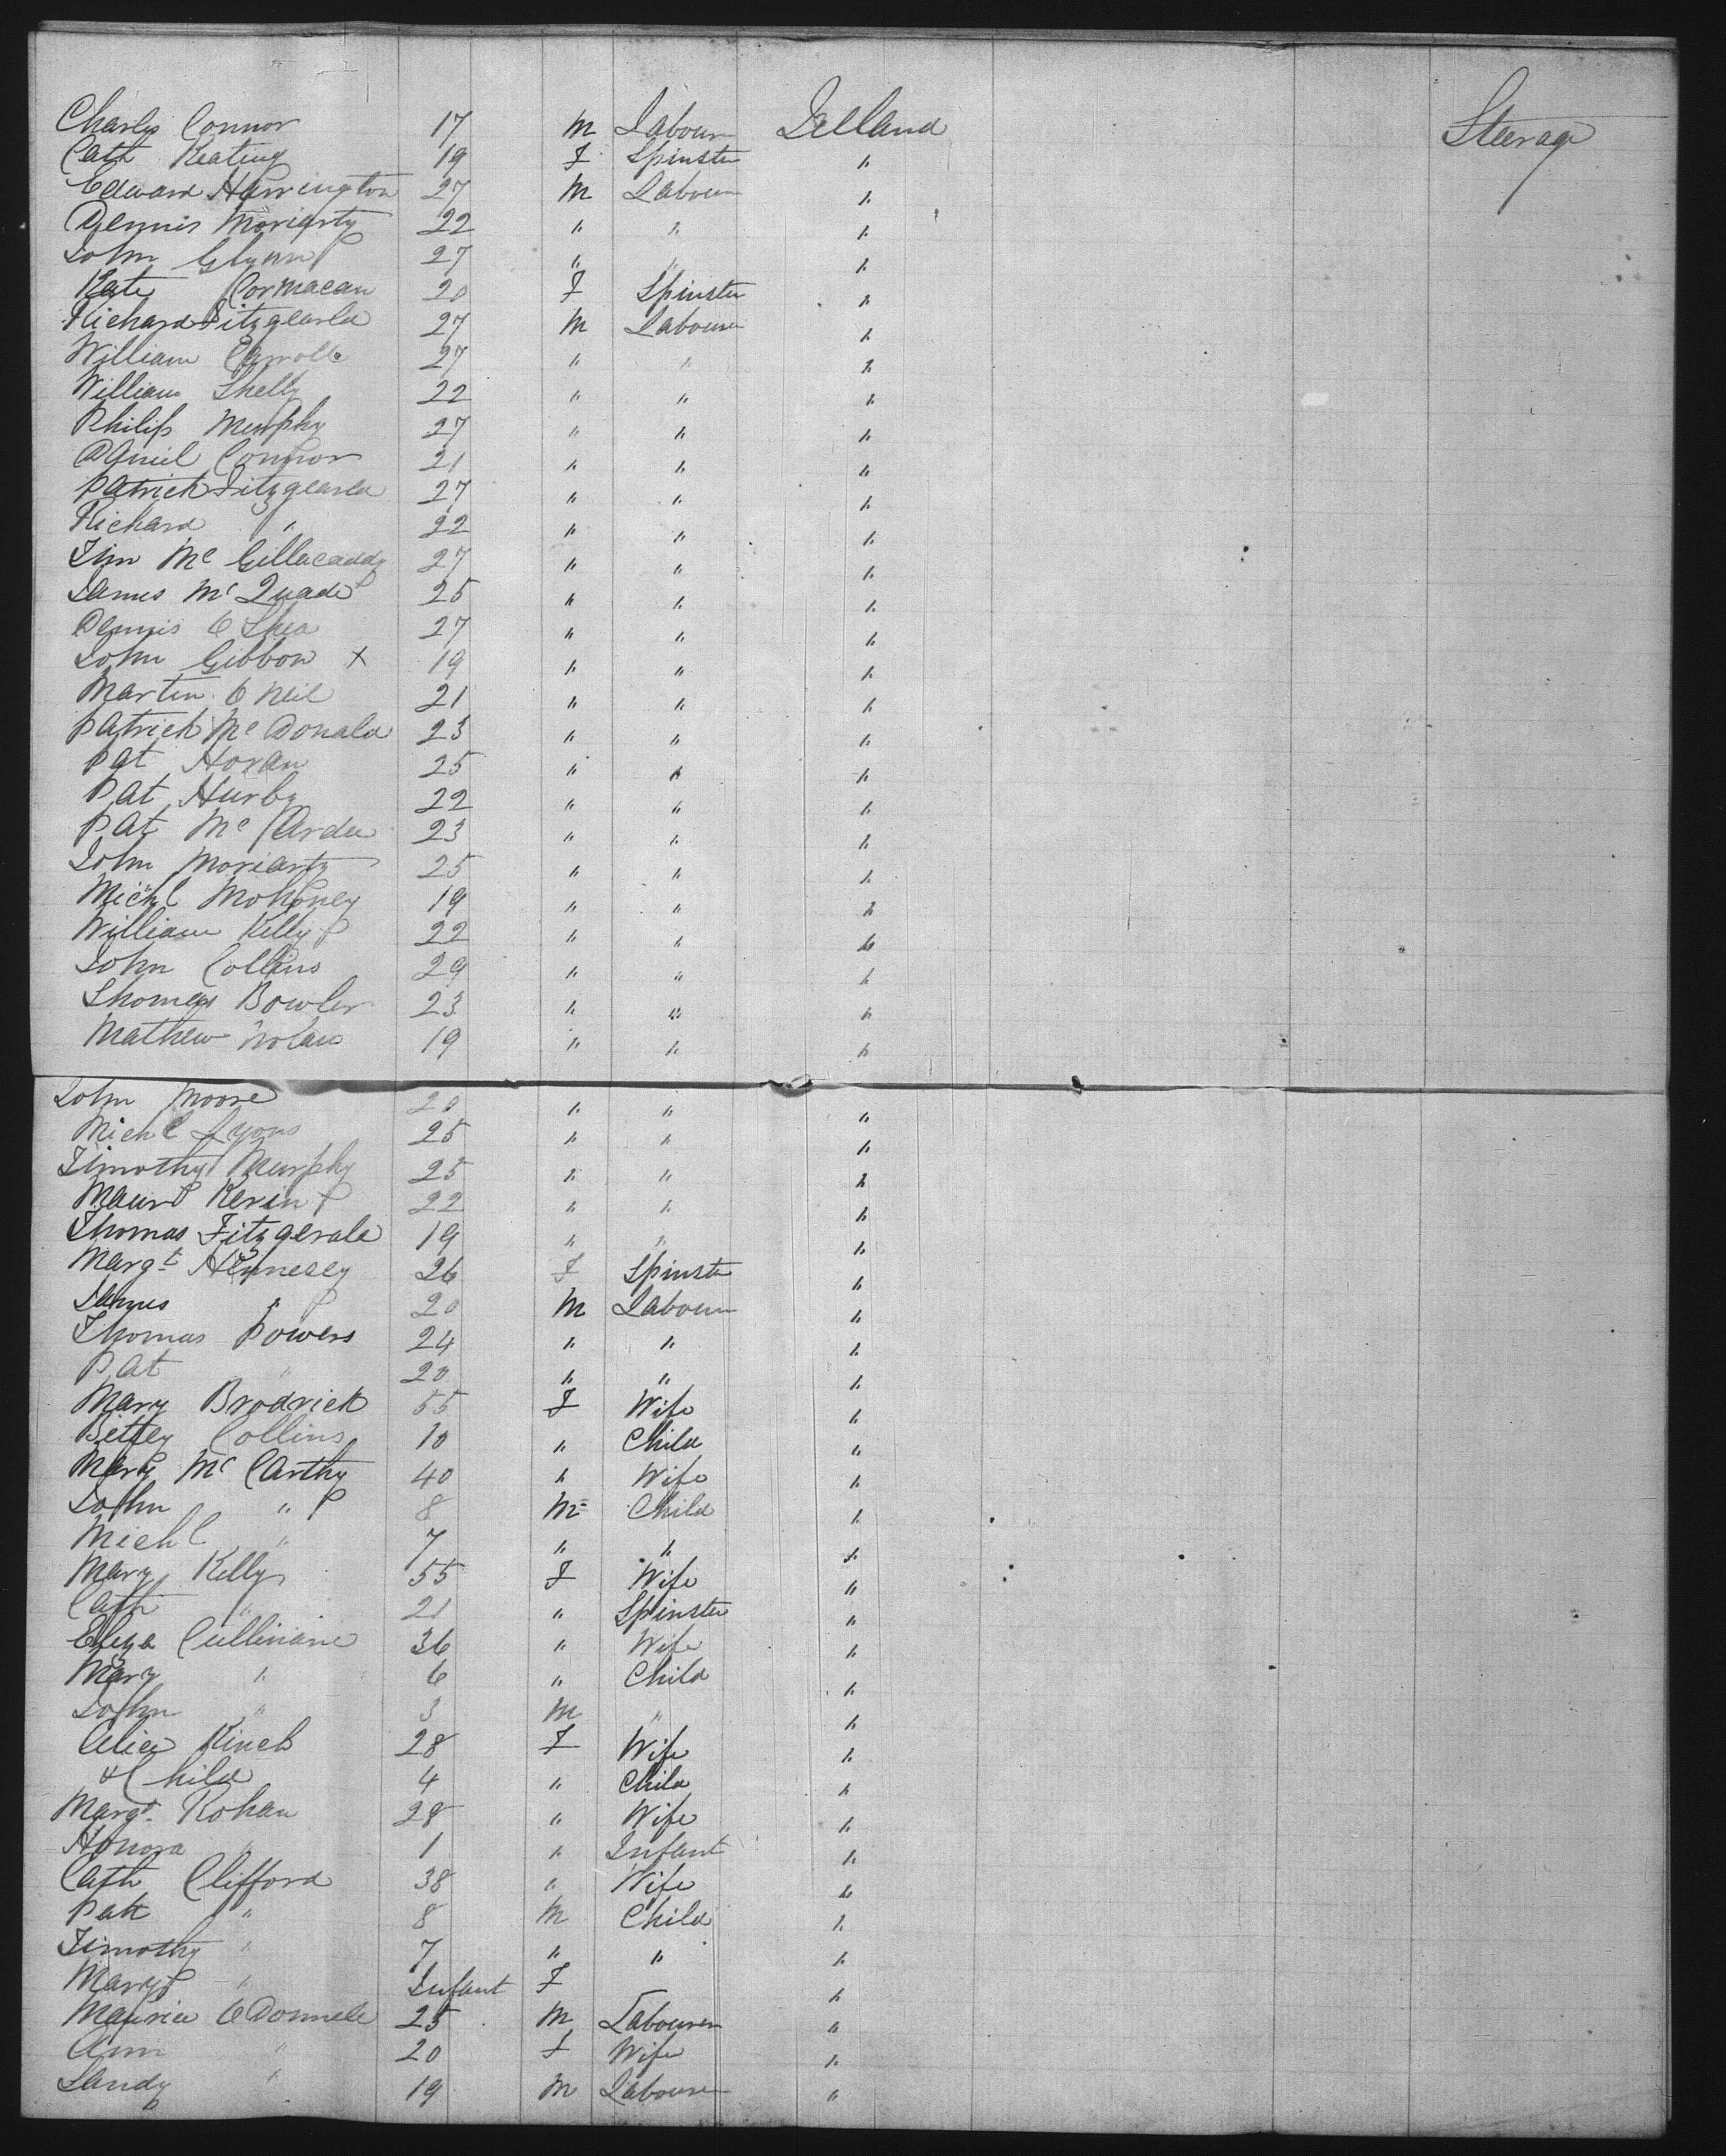 Charles Connor 17 M Labourer Ireland Steerage
Cath Keating 19 F Spinster "
Edward Harrington 27 M Labourer "
Dennis Moriarty 22 " " "
John Glynn 27 " " "
Kate Cormacan 20 F Spinster "
Richard Fitzgearld 27 M Labourer "
William Carroll 27 " " "
William Shelly 22 " " "
Philip Murphy 27 " " "
Daniel Connor 21 " " "
Patrick Fitzgearld 27 " " "
Richard " 22 " " "
Tim Mc Gillacaddy 27 " " "
James Mc Quade 25 " " "
Dennis O Shea 27 " " "
John Gibbon x 19 " " "
Martin O Neil 21 " " "
Patrick Mc Donald 23 " " "
Pat Horan 25 " " "
Pat 22 " " "
Pat Mc 23 " " "
John Moriarty 25 " " "
Michl Mohoney 19 " " "
William Kelly 22 " " "
John Collins 29 " " "
Thomas Bowler 23 " " "
Mathew Nolan 19 " " "
John Moore 20 " " "
Michl Lyons 25 " " "
Timothy Murphy 25 " " "
Maur Kevin 22 " " "
Thomas Fitzgerald 19 " " "
Margt Hennesey 26 F Spinster "
James " 20 M Labourer "
Thomas Powers 24 " " "
Pat " 20 " " "
Mary Brodrick 55 F Wife "
Bettey Collins 10 " Child "
Mary Mc Carthy 40 " Wife "
John " 8 M Child "
Michl " 7 " " "
Mary Kelly 55 F Wife "
Cath " 21 " Spinster "
Eliza Cullinane 36 " Wife "
Mary " 6 " Child "
John " 3 M " "
Alice Kinch 28 F Wife "
& Child 4 " Child "
Margt Rohan 28 " Wife "
Honora " 1 " Infant "
Cath Clifford 38 " Wife "
Patt " 8 M Child "
Timothy " 7 " " "
Mary " Infant F "
Maurice O Donnell 25 M Labourer "
Ann " 20 F Wife "
Sandy " 19 M Labourer "